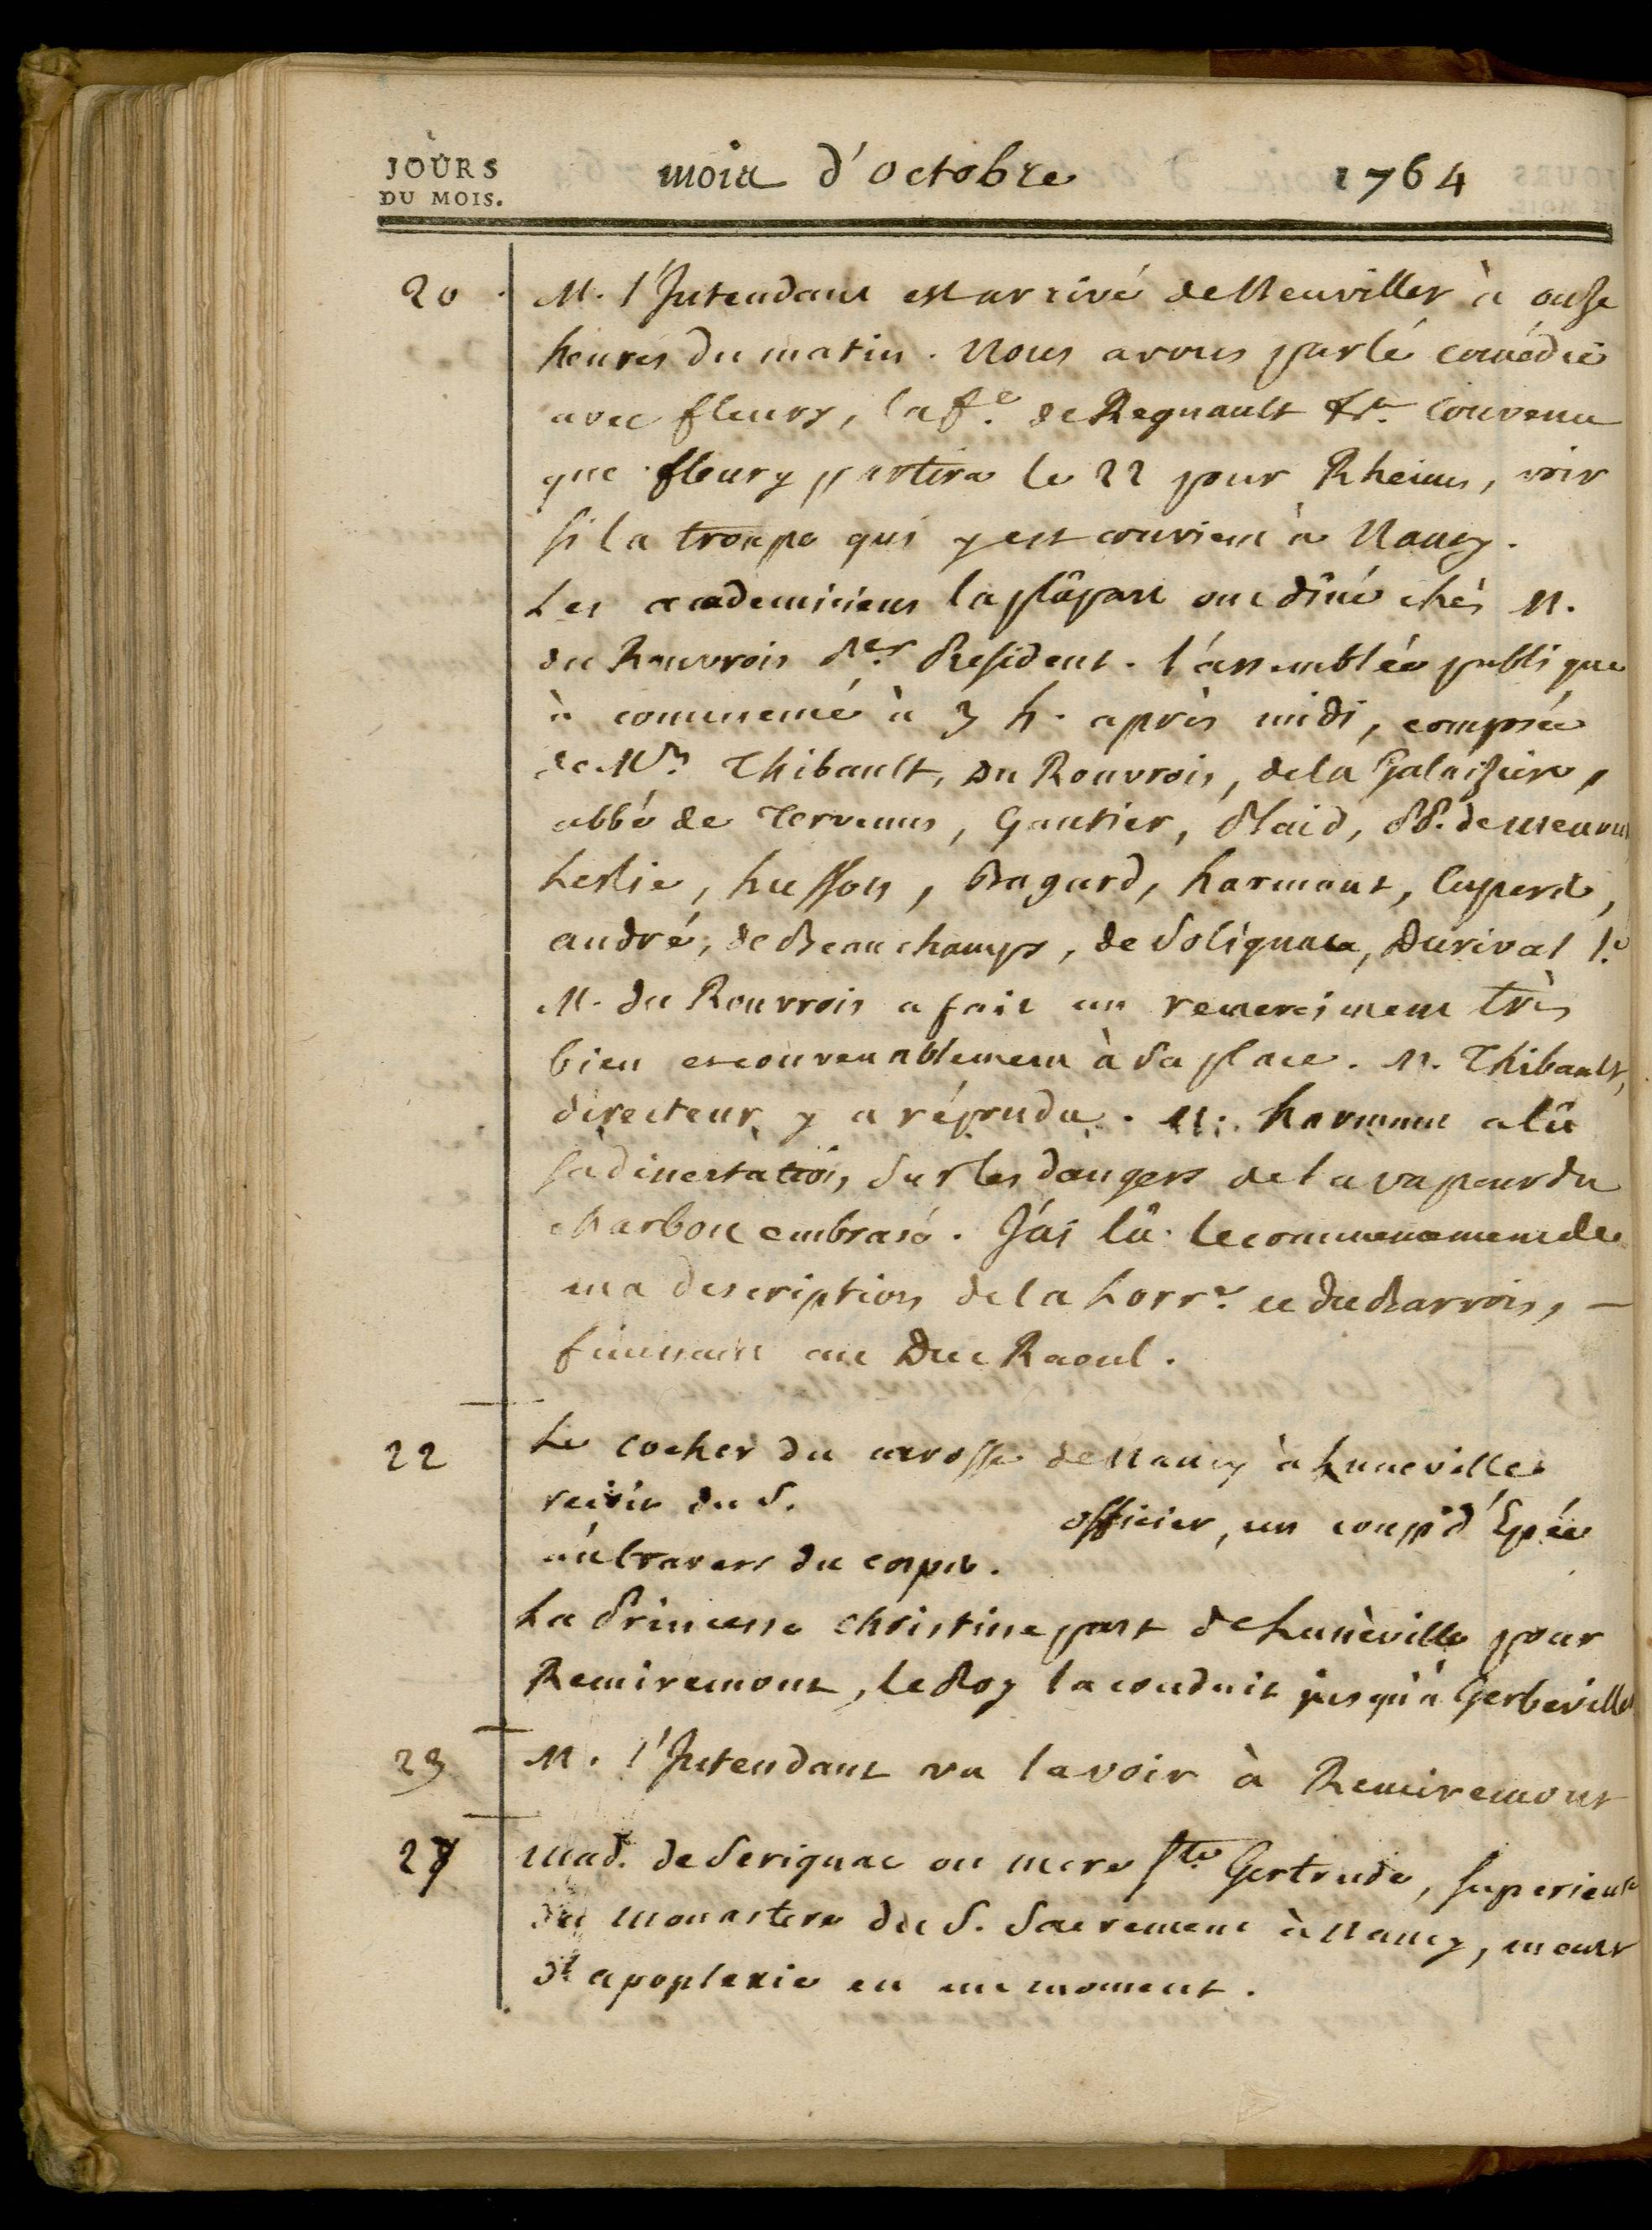 JOURS
DU MOIS.
mois d'octobre 1764
20 M. l'Intendant est arrivé de Neuviller à onze
heures du matin. Nous avons parlé comédie
avec fleury, la fe. de Regnault &a. Convenu
que fleury partira le 22 pour Rheims, voir
si la troupe qui y est convient à Nancy.
Les academiciens la plûpart ont dîné chés M.
du Rouvrois Per. President. l'assemblée publique
à commencé à 3 h. après midi, composée
de Mrs. Thibault, du Rouvrois, de la Galaizière,
abbé de Tervenus, Gautier, Plaid, PP. de Menoux
Leslie, husson, Bagard, harmant, Cupers,
andré, de Beauchamps, de Solignac, Durival l.
M. du Rouvrois a fait un remerciment très
bien et convenablement à sa place. M. Thibault,
directeur y a répondu. M. harmant a lû
sa dissertation, sur les dangers de la vapeur du
charbon embrasé. J'ai lû le commencement de
ma description de la Lorre. et du Barrois, —
finissant au Duc Raoul.
22 Le cocher du carrosse de Nancy à Luneville
reçoit du S. officier, un coup d'Epée
au travers du corps.
La Princesse Christine part de Lunèville pour
Remiremont, le Roy la conduit jusqu'à Gerbeviller
23 M. l'Intendant va la voir à Remiremont
27 Mad. de Serignac ou mere Ste Gertrude, superieure
du Monastere du S. Sacrement à Nancy, meurt
d'apoplexie en un moment.